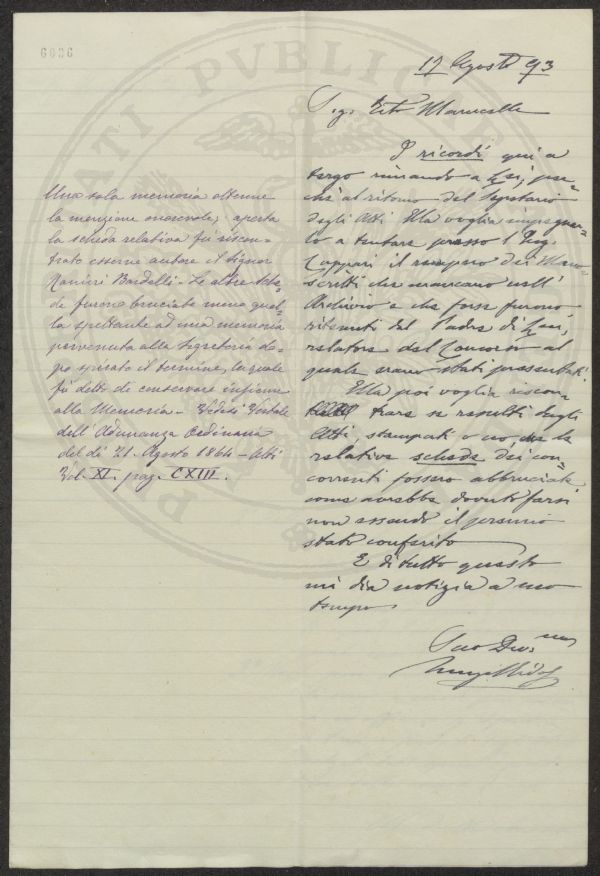 6036
17 Agosto 93
Sigr Tito Marucelli
I ricordi qui a
tergo rimando a Lei, per-
chè al ritorno del Segretario
degli Atti Ella voglia impegnar-
lo a tentare presso l'Ing.
Cappari il recupero dei Mano-
scritti che mancano nell'
Archivio e che forse furono
ritenuti dal Padre di Lui,
relatore del Concorso al
quale erano stati presentati.
Ella poi voglia riscon-
trare se resulti dagli
Atti, stampati o no, che le
relative schede dei con-
correnti fossero abbruciate
come avrebbe dovuto farsi
non essendo il premio
stato conferito
E di tutto questo
mi dia notizia a suo
tempo.
Suo Dev.mo
Una sola memoria ottenne
la menzione onorevole; aperta
la scheda relativa fù riscon-
trato esserne autore il Signor
Ranieri Bardelli - Le altre sche-
de furono bruciate meno quel-
la spettante ad una memoria
pervenuta alla Segreteria do-
po spirato il termine, la quale
fù detto di conservare insieme
alla Memoria - Vedasi Verbale
dell'Adunanza Ordinaria
del dì 21. Agosto 1864 - Atti
Vol. XI. pag. CXIII.
PVBLICAE